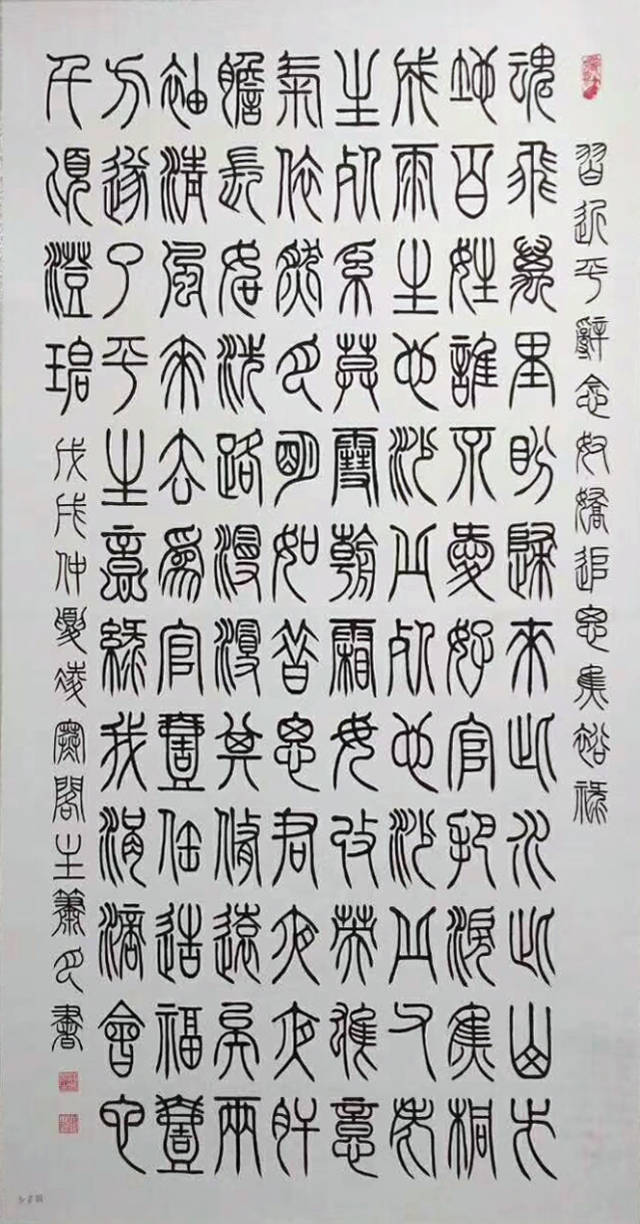 習近平辭念奴嬌追思焦裕祿
魂飛萬里盼歸來此水此山此
地百姓誰不愛好官把淚焦桐
成雨生也沙丘死也沙丘父老
生死系莫雪朝霜毋改英雄意
氣依然月明如昔思君夜夜肝
膽長如洗路漫漫其修遠矣兩
袖清風來去為官壹任造福壹
方遂了平生意綠我涓滴會它
千頃澄碧 戊戌仲夏凌寒閣主簫月書